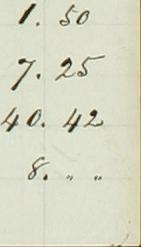 1. 50
7. 25
40. 42
8. " "